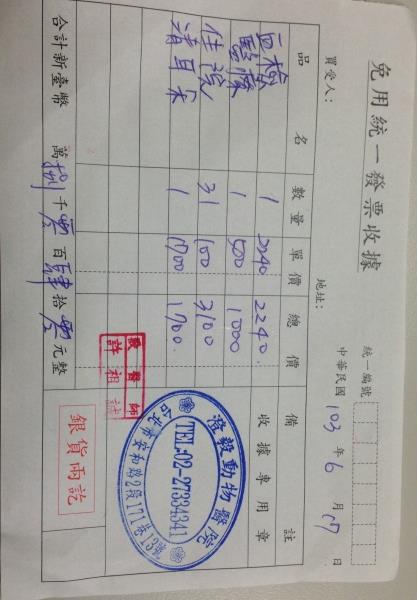 免用統一發票收據
統一編號
買受人： 地址： 中華民國 103 年 6 月 日
品名 數量 單價 總價 備註
血檢 1 2240 2240. 收據專用章
醫療 1 1000
住院 31 100 3100
清耳朵 1 1700. 1700.
澄毅動物醫院
TEL:02-27334341
台北市安和路2段171巷13號
獸醫師
許祖
合計新臺幣 萬 捌 千 零 百 肆 拾 零 元整
銀貨兩訖